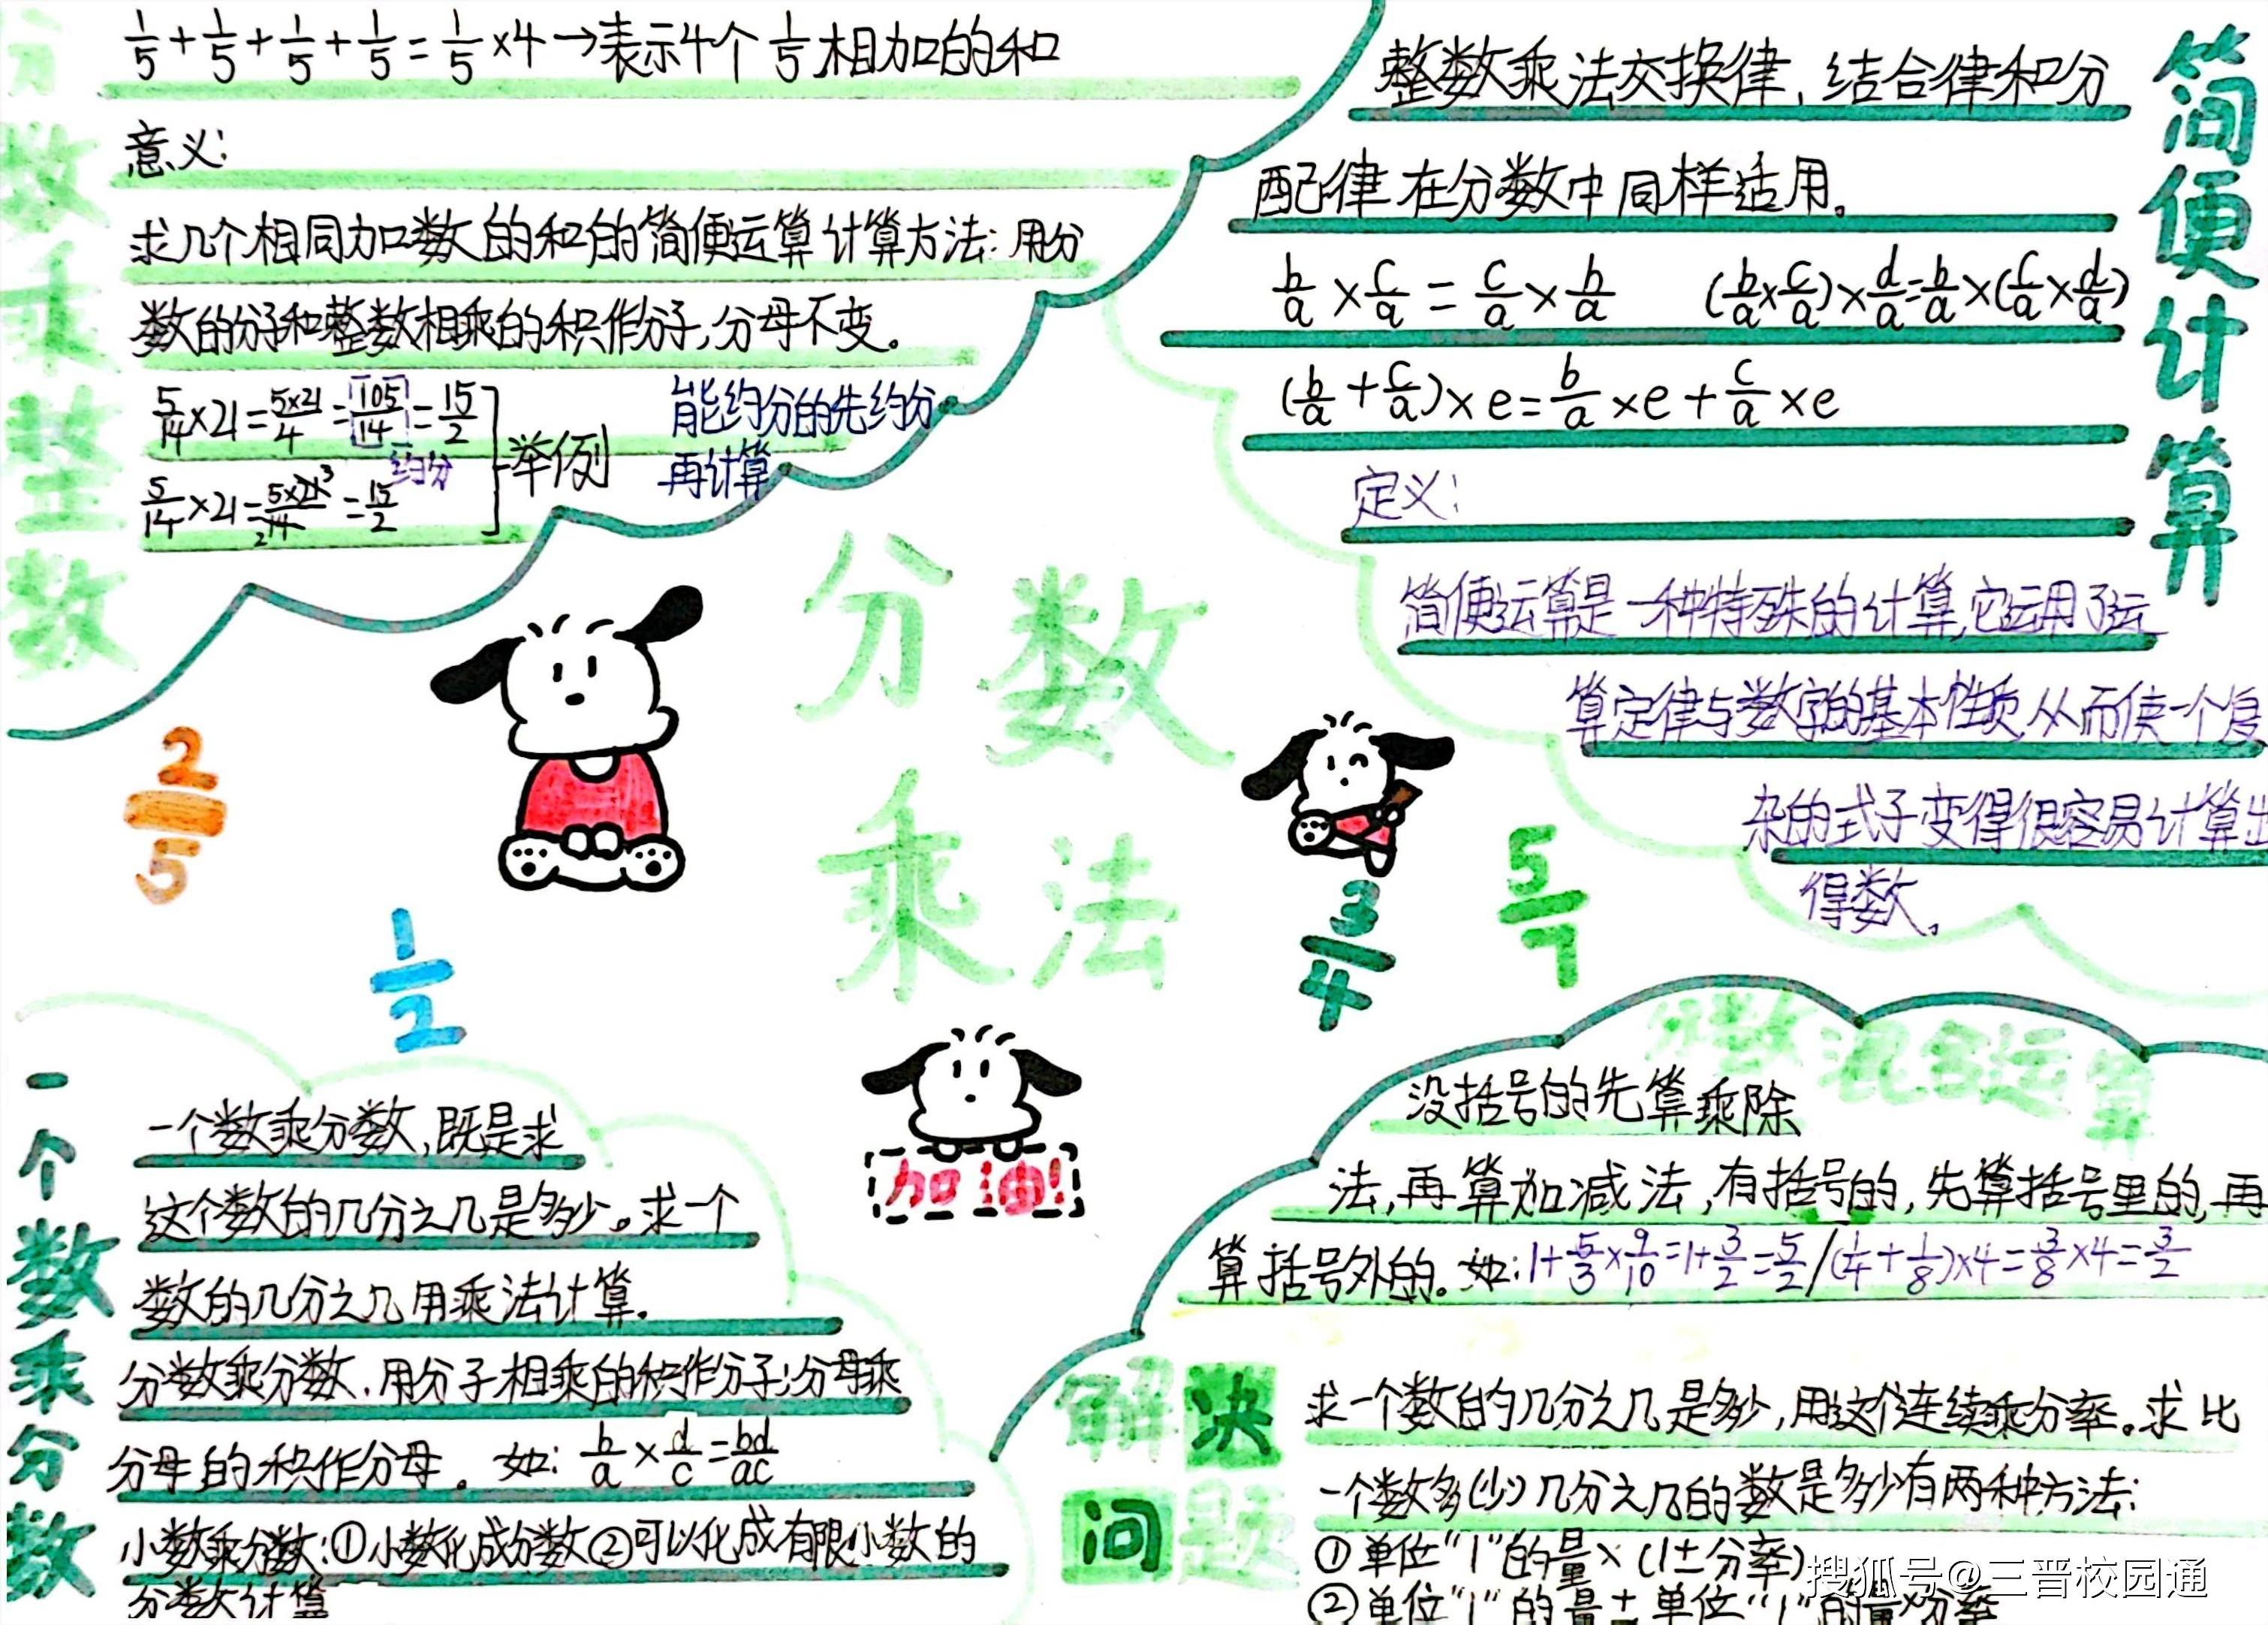 分数乘整数
1/5+1/5+1/5+1/5=1/5×4→表示4个1/5相加的和
意义:
求几个相同加数的和的简便运算计算方法:用分
数的分子和整数相乘的积作分子,分母不变。
5/14×21=5×21/4=105/14=15/2
约分
5/14×21=5×21/14=15/2
3
2
举例
能约分的先约分
再计算
简便计算
整数乘法交换律,结合律和分
配律在分数中同样适用。
b/a×c/a=c/a×b/a (b/a×c/a)×d/a=b/a×(c/a×d/a)
(b/a+c/a)×e=b/a×e+c/a×e
定义:
简便运算是一种特殊的计算,它运用了运
算定律与数字的基本性质,从而使一个复
杂的式子变得很容易计算出
得数。
分数
乘法
2/5
1/2
3/4
5/7
加油!
一个数乘分数
一个数乘分数,既是求
这个数的几分之几是多少。求一个
数的几分之几用乘法计算。
分数乘分数,用分子相乘的积作分子;分母乘
分母的积作分母。如:b/a×d/c=bd/ac
小数乘分数:①小数化成分数②可以化成有限小数的
分数计算
分数混合运算
没括号的先算乘除
法,再算加减法,有括号的,先算括号里的,再
算括号外的。如:1+5/3×9/10=1+3/2=5/2/(1/4+1/8)×4=3/8×4=3/2
解决
问题
求一个数的几分之几是多少,用这个连续乘分率。求比
一个数多(少)几分之几的数是多少有两种方法:
①单位“1”的量×(1±分率)
②单位“1”的量±单位“1”的量×分率
搜狐号@三晋校园通